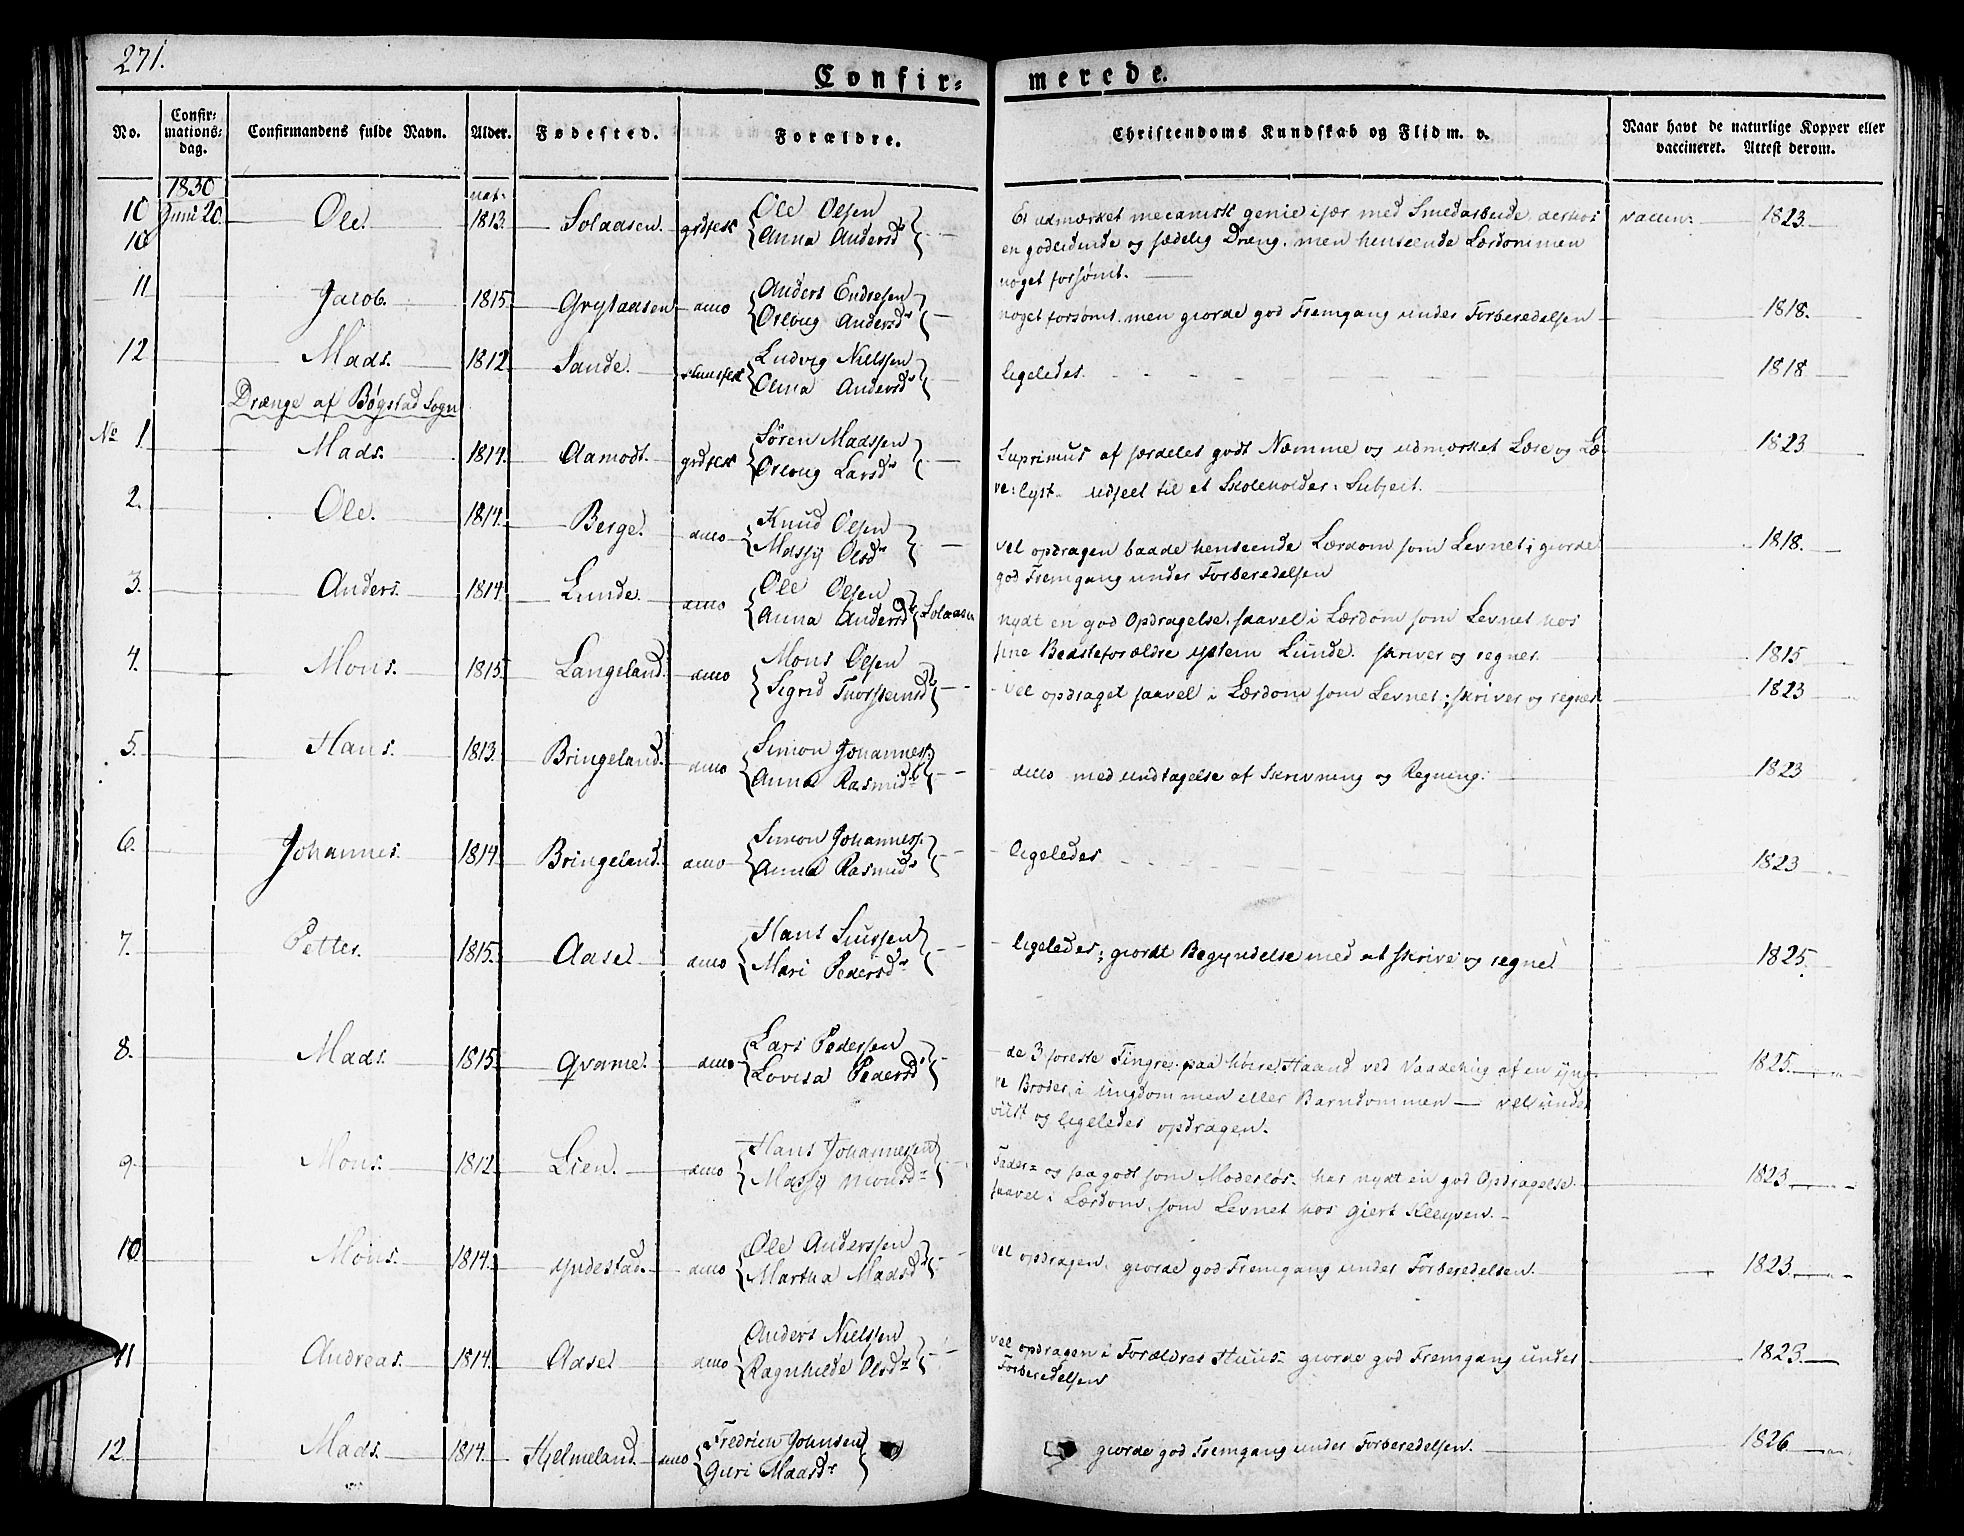 271.
Confir=
merede.
No.
Confir=
mations=
dag.
Confirmandens fulde Navn.
Alder.
Fødested.
Forældre.
Christendoms Kundskab og Flid m. v.
Naar havt de naturlige Kopper eller
vaccineret. Attest derom.
1830
10 Juni 20. Ole. nat: 1813. Solaasen. grdfolk Ole Olsen
10 Anna Andersdr
Et udmærket mecanisk genie især med Smedarbeide, derhos vaccin: 1823
en godlidende og sædelig Dræng, men henseende Lærdommen
noget forsømt.
11 Jacob. 1815. Grytaasen ditto Anders Endresen
Oeloug Andersdr
noget forsømt, men giorde god Fremgang under Forberedelsen 1818.
12 Mads. 1812. Sande. Ludvig Nielssen
Anna Andersdr
ligeledes. 1818
Drænge af Bøgstad Sogn
No 1 Mads. 1814. Aamodt. grdfolk Søren Madssen
Oeloug Larsdr
Suprimus af særdeles godt Næmme og udmærket Lære og Læ= 1823
re=lyst. udseet til et Skoleholder=Subject.
2. Ole. 1814. Berge. ditto Knud Olsen
Massij Olsdr
vel opdragen baade henseende Lærdom som Levnet; giorde 1818.
god Fremgang under Forberedelsen
3. Anders. 1814. Lunde. ditto Ole Olsen
Anna Andersdr Solaasen
nydt en god Opdragelse, saavel i Lærdom som Levnet hos
sine Bedsteforældre Lunde. skriver og regner. 1815
4. Mons. 1815. Langeland. ditto Mons Olsen
Sigrid Thorsteinsdr
vel opdraget saavel i Lærdom som Levnet; skriver og regner. 1823
5. Hans. 1813. Bringeland. ditto Simon Johanness.
Anna Rasmusdr
ditto med undtagelse af Skrivning og Regning. 1823
6. Johannes. 1814. Bringeland. ditto Simon Johanness.
Anna Rasmusdr
ligeledes 1823
7. Petter. 1815. Aase ditto Hans Siurssen
Mari Pedersdr
ligeledes; giordt Begyndelse med at skrive og regne. 1825.
8. Mads. 1815. Qvame. ditto Lars Pedersen
Lovisa Pedersdr
de 3 første Fingre paa høire Haand ved Vaadehug af en yng= 1825.
re Broder, i Ungdommen eller Barndommen — vel under
viist og ligeledes opdragen.
9. Mons. 1812. Lien. ditto Hans Johannesen
Massij Monsdr
Fader= og saa godt som Moderløs. har nydt en god Opdragelse 1823
saavel i Lærdom, som Levnet hos Giert Kleyven.
10 Mons. 1814. Yndestad. ditto Ole Anderssen
Martha Madsdr
vel opdragen, giorde god Fremgang under Forberedelsen. 1823.
11 Andreas. 1814. Aase. ditto Anders Nielssen
Ragnhilde Olsdr
vel opdragen i Forældres Huus. giorde god Fremgang under 1823.
Forberedelsen
12. Mads. 1814. Hielmeland. ditto Fredrich Johnsen
Guri Madsdr
giorde god Fremgang under Forberedelsen. 1826